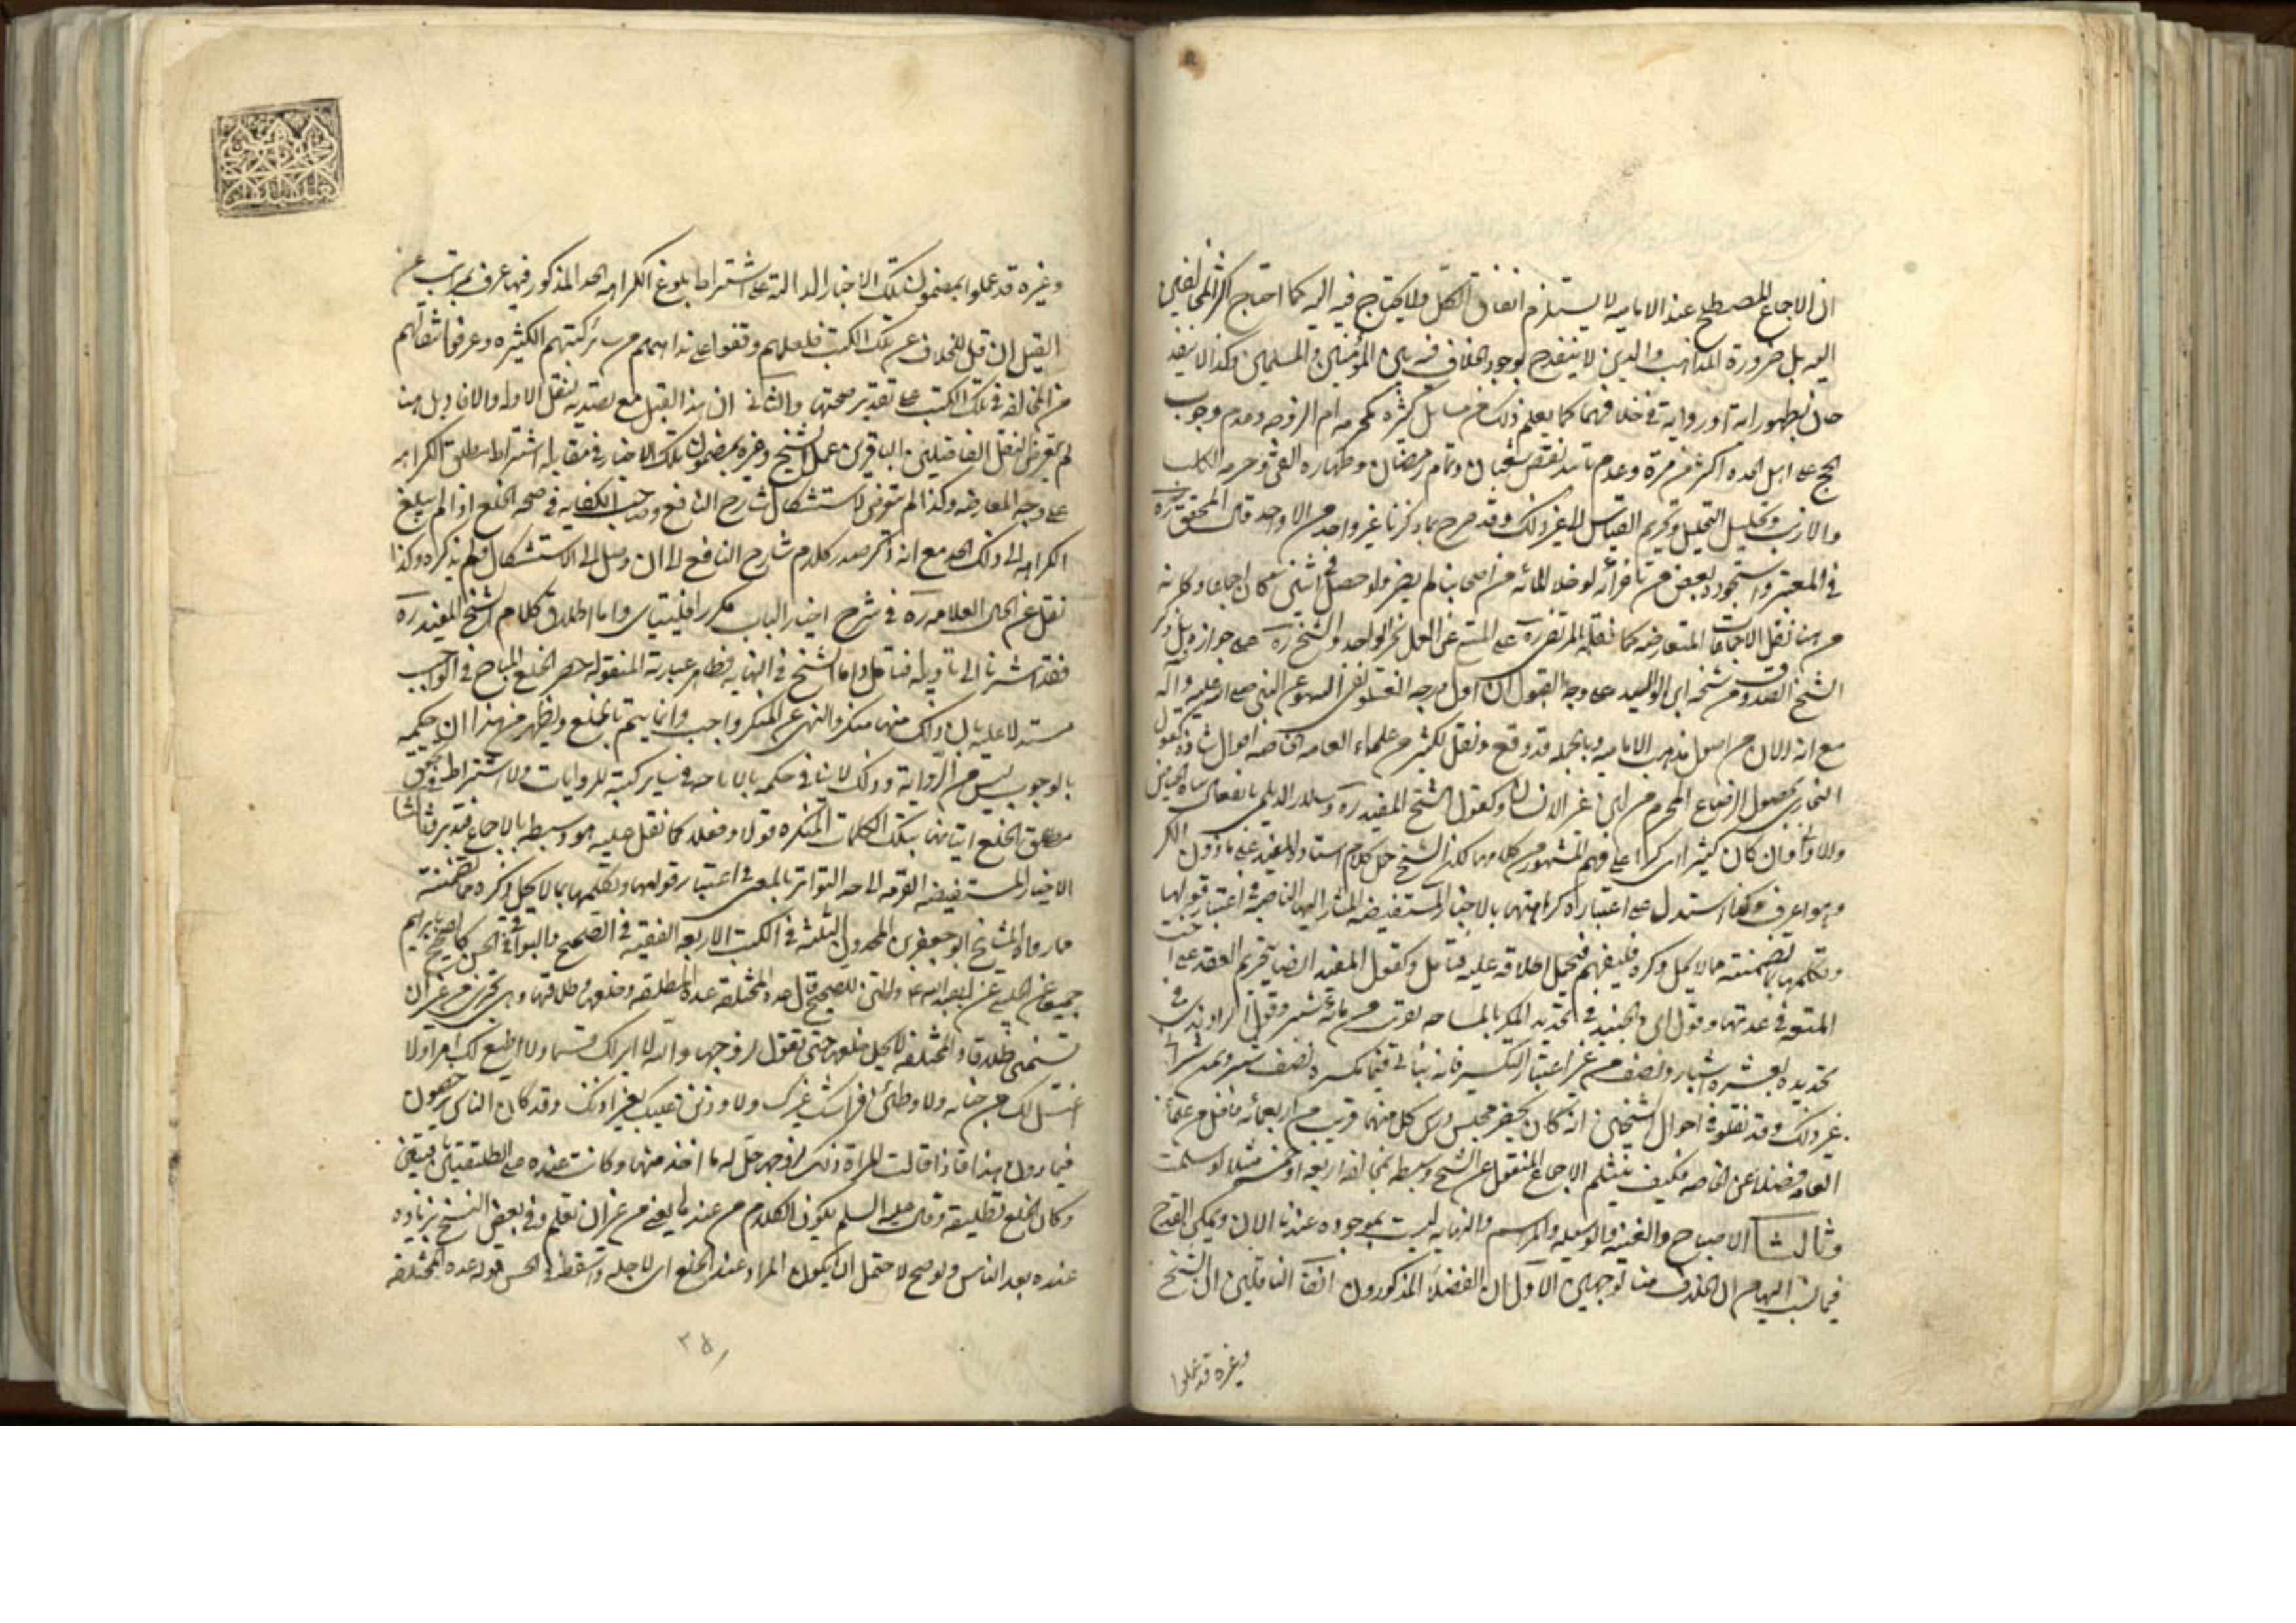 ان الاجماع المصطلح عند الاماميه لا يستلزم اتفاق الكل ولا يحتاج فيه اليه كما احتاج اكثر المخالفين
اليه بل ضرورة المذاهب والدين لا ينقدح بوجود الخلاف فيه بين المؤمنين والمسلمين وكذا لا ينقد
حان بظهور اية او رواية في خلافهما كما يعلم ذلك من مسايل كثيره كحرمه ام الزوجه وعدم وجوب
الحج على اهل الجده اكثر من مرة وعدم نقص شعبان وتمام رمضان وطهاره القئ وحرمه الكلب
والارنب وتحليل التحليل وتحريم القياس الى غير ذلك وقد صرح بما ذكرنا غير واحد من الاواحد قال المحقق ره
في المعتبر واستجوده بعض من تاخر انه لو خلا المائه من اصحابنا لم يضر ولو حصل في اثنين كان اجماعا وكانه
من هنا نقل الاجماعات المتعارضه كما نقله المرتضى ره على المنع عن العمل بخبر الواحد والشيخ ره على جوازه بل ذكر
الشيخ الصدوق من شيخه ابن الوليد على وجه القبول ان اول درجه الغلو نفى السهو عن النبي صلى الله عليه وآله
مع انه الان من اصول مذهب الاماميه وبالجمله قد وقع ونقل لكثير من علماء العامه والخاصه اقوال شاذه كقول
البخاري بحصول الرضاع المحرم من لبن غير الانسان وكقول الشيخ المفيد ره وسلار الديلمي
والاواني وان كان كثيرا اى كرا على فهم المشهور من كلامهما لكن الشيخ حمل كلام استاده المفيد على ما دون الكر
وهو اعرف وكذا استدل على اعتباره كراهتها بالاخبار المستفيضه المشار اليها الناصه في اعتبار قولها
وتكلمها بما تضمنته مما لا يحل ذكره فليفهم فيحمل اطلاقه عليه فتامل وكقول المفيد ايضا بتحريم العقد على اخت
المتعه في عدتها وقول ابن الجنيد في تحديد الكر بالمساحه بنحو من مائه شبر وقول الراوندي في
تحديده بعشره اشبار ونصف من غير اعتبار التكسير
غير ذلك وقد نقلوا في احوال الشيخين انه كان يحضر مجلس درس كل منهما قريب من اربعمائه فاضل من علماء
العامه فضلا عن الخاصه فكيف ينثلم الاجماع المنقول عن الشيخ وسبطه بمخالفه اربعه او خمسه مثلا لو سلمت
وثالثا الاصباح والغنيه والوسيله والمراسم والنهايه ليست بموجوده عندنا الان ويمكن القدح
فيما نسب اليهم من الخلاف من وجهين الاول ان الفضلا المذكورون الناقلين ان الشيخ
وغيره قد عملوا
وغيره قد عملوا بمضمون تلك الاخبار الداله على اشتراط بلوغ الكراهه الحد المذكور فيها
القيل ان قل للخلاف عن تلك الكتب فلعلهم وقفوا على مذاهبهم من ساير كتبهم الكثيره وعرفوا
من المخالفه في تلك الكتب على تقدير صحتها والثاني ان هذا القيل مع تصديه لنقل الاوله والاقاويل هنا
لم يتعرض لنقل الفاضلين الباقرين عمل الشيخ وغيره بمضمون تلك الاخبار في مقابله اشتراط مطلق الكراهه
على وجه المعارضه وكذا لم يتعرض لاستشكال شارح النافع وصاحب الكفايه في صحه الخلع اذا لم يبلغ
الكراهه الى ذلك الحد مع انه ذكر صدر كلام شارح النافع الى ان وصل الى الاستشكال فلم يذكره وكذا
نقل عن الخال العلامه ره في شرح اخبار الباب مكررا واما اطلاق كلام الشيخ المفيد ره
فقد اشرنا الى تاويله فتامل واما الشيخ في النهايه فظاهر عبارته المنقوله حصر الخلع المباح في الواجب
مستدلا عليه بان ذلك منها منكر والنهى عن المنكر واجب وانما يتم بالخلع ويظهر من هذا ان حكمه
بالوجوب ليس من الروايه وذلك لا ينافي حكمه بالاباحه في ساير كتبه للروايات ولا اشتراط تحقق
مطلق الخلع اتيانها بتلك الكلمات المنكره قولا وفعلا كما نقل عليه هو وسبطه بالاجماع فتدبر وثالثا
الاخبار المستفيضه القريبه الى حد التواتر بالمعنى في اعتبار قولها وتكلمها بما لا يحل ذكره مما تضمنته
ما رواه المشايخ ابو جعفرين المحمدون الثلثه في الكتب الاربعه الفقهيه في الصحيح والبواقي في الحسن كالصحيح بابراهيم
جميعا عن الحلبي عن ابى عبد الله ع والمتن للصحيح قال عده المختلعه عده المطلقه وخلعها طلاقها وهي تجزي من غير ان
تسمى طلاقا والمختلعه لا يحل خلعها حتى تقول لزوجها والله لا ابر لك قسما ولا اطيع لك امرا ولا
اغتسل لك من جنابه ولاوطئن فراشك غيرك ولاوذنن عليك بغير اذنك وقد كان الناس يرخصون
فيما دون هذا فاذا قالت المراة ذلك لزوجها حل له ما اخذ منها وكانت عنده على تطليقتين باقيتين
وكان الخلع تطليقه وقال عليه السلم يكون الكلام من عندها يعنى من غير ان تعلم وفي بعض النسخ بزياده
عنده بعد الناس ولو صح لاحتمل ان يكون المراد عند الخلع اى لاجله واسقط في الحسن قوله عده المختلعه